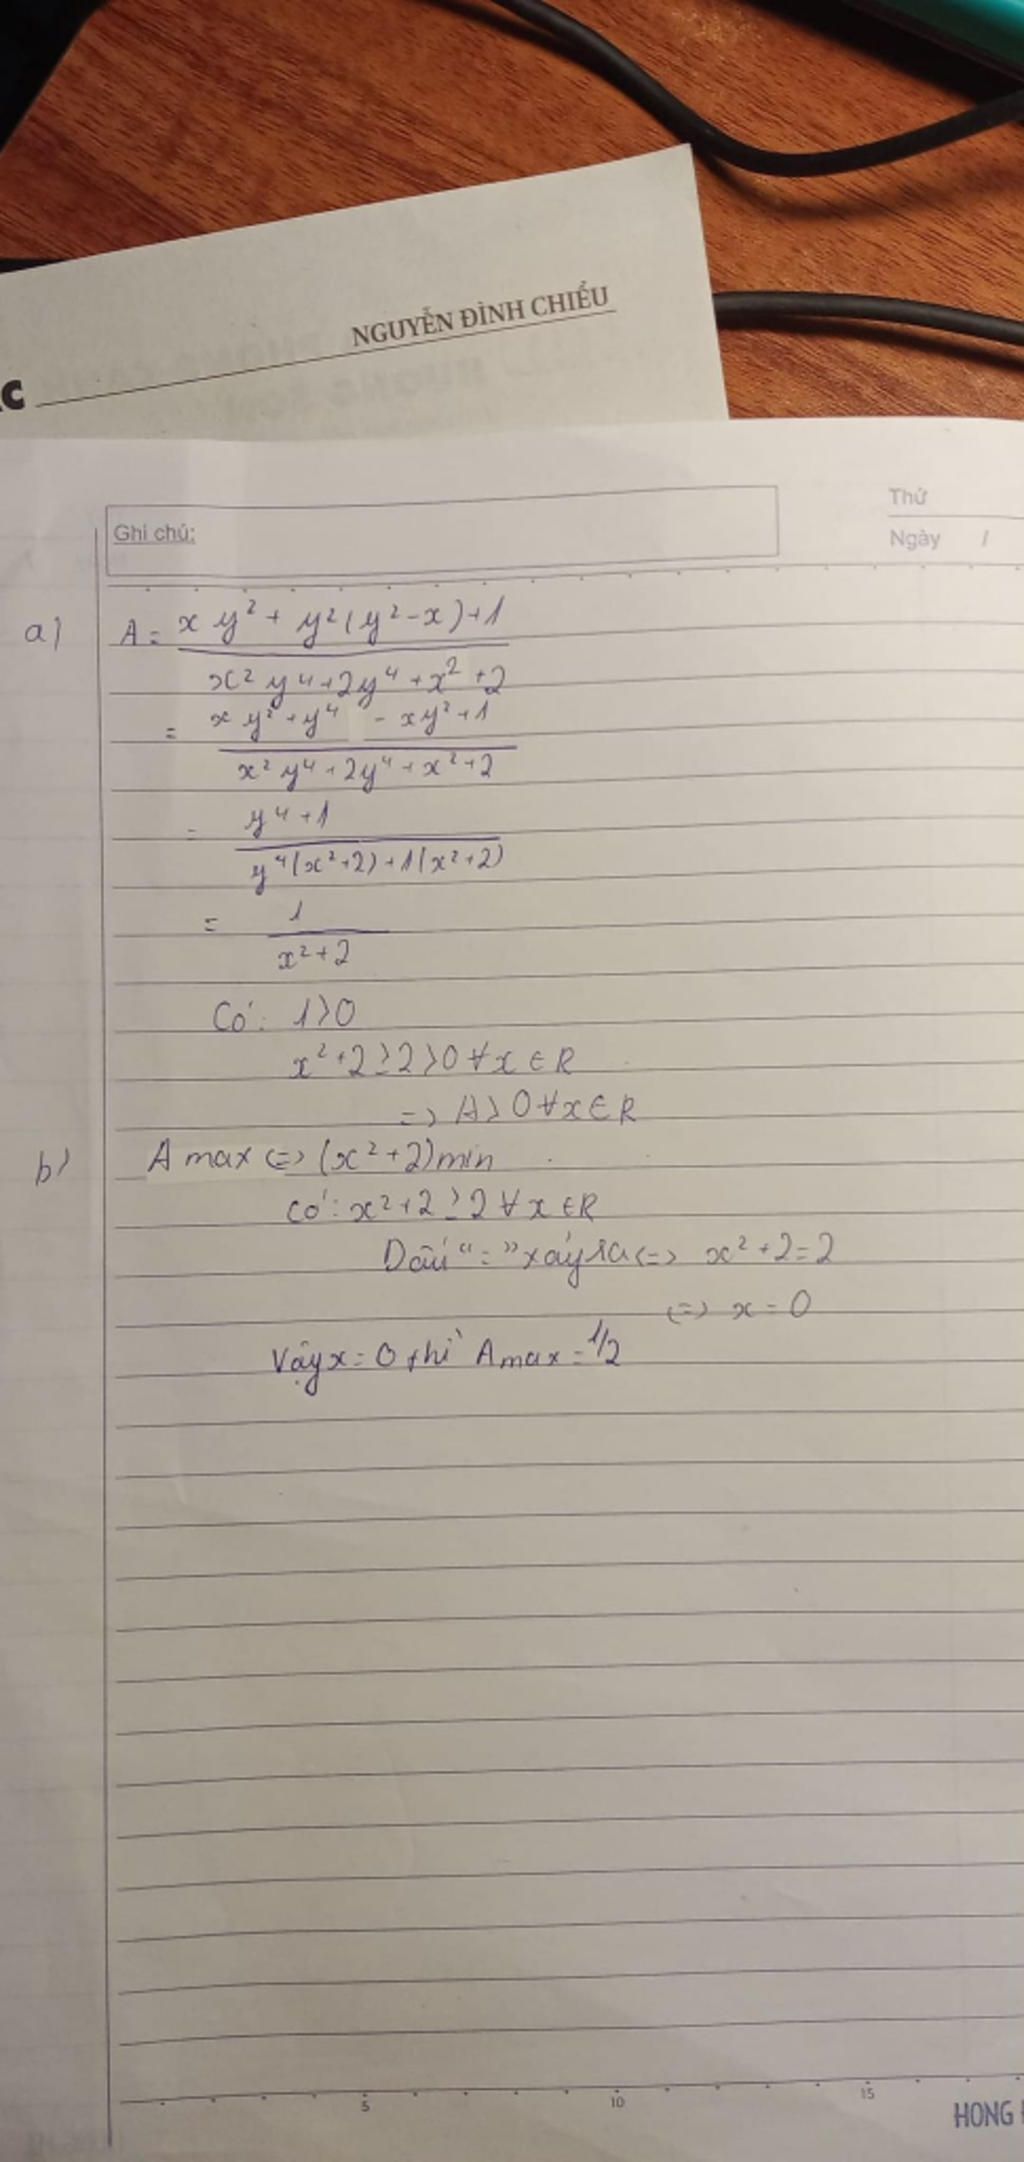 NGUYỄN ĐÌNH CHIỂU
C
Thứ
Ghi chú:
Ngày /
a) A = xy² + y²(y² - x) + 1
x²y⁴ + 2y⁴ + x² + 2
= xy² + y⁴ - xy² + 1
x²y⁴ + 2y⁴ + x² + 2
= y⁴ + 1
y⁴(x² + 2) + 1(x² + 2)
= 1
x² + 2
Có: 1 > 0
x² + 2 ≥ 2 > 0 ∀ x ∈ R
=> A > 0 ∀ x ∈ R
b) A max <=> (x² + 2) min
Có: x² + 2 ≥ 2 ∀ x ∈ R
Dấu "=" xảy ra <=> x² + 2 = 2
<=> x = 0
Vậy x = 0 thì A max = 1/2
5 10 15
HONG